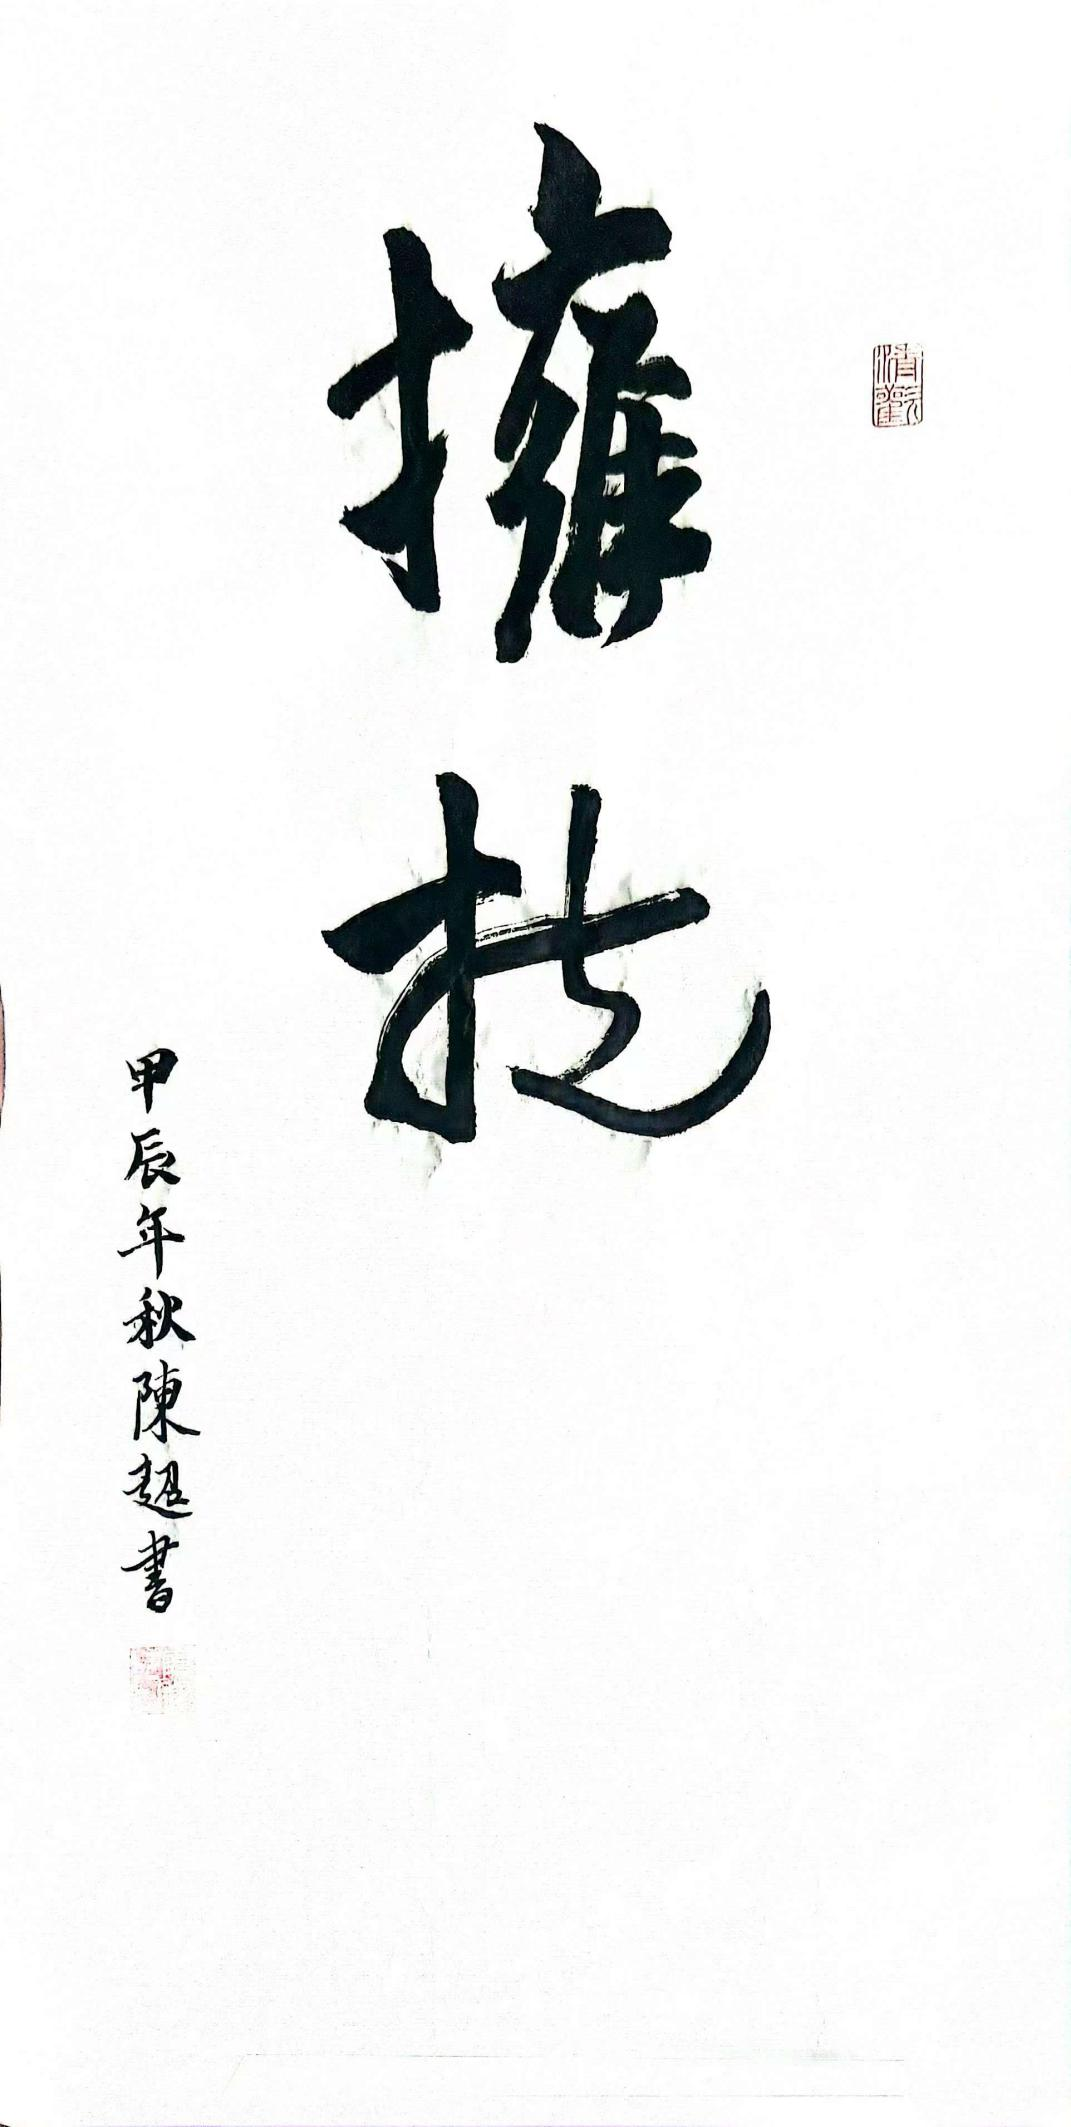 清歡
擁
甲辰年秋陳超書